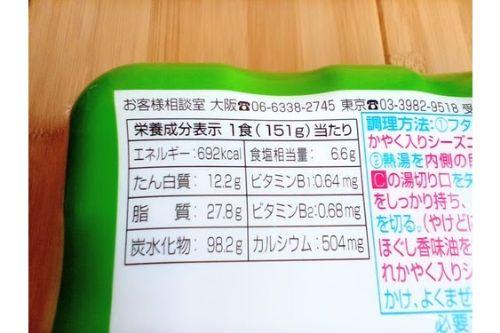 お客様相談室 大阪☎06-6338-2745 東京☎03-3982-9518 受
栄養成分表示 1食(151g)当たり
エネルギー:692kcal 食塩相当量: 6.6g
たん白質: 12.2g ビタミンB1:0.64mg
脂 質: 27.8g ビタミンB2:0.68mg
炭水化物: 98.2g カルシウム:504mg
調理方法:①フタ
かやく入りシーズニ
②熱湯を内側の
Cの湯切り口を
をしっかり持ち、
を切る。(やけどに
ほぐし香味油を
れかやく入りシ
かけ、よくまぜ
必要